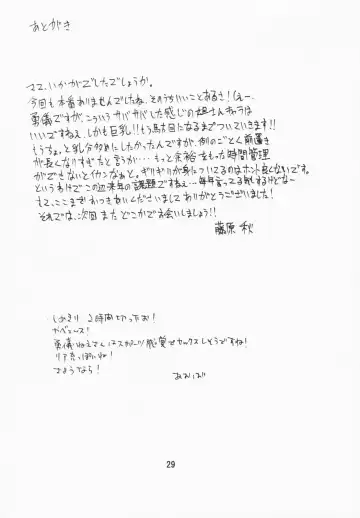 あとがき
さて、いかがでしたでしょうか。
今回も本番ありませんでしたね、そのうちいいことあるさ！(えー
勇儀ですが、こういうサバサバした感じの姐さんキャラは
いいですねえ、しかも巨乳!!もう駄目になるまでついていきます!!
もうちょっと乳分多めにしたかったんですが、例のごとく前置き
が長くなりすぎたと言うか…もっと余裕をもった時間管理
ができないとイカンなぁと。ギリギリが身についてるのはホント良くないです。
というわけでこの辺来年の課題ですねえ…毎年言ってる気するけどなー
さて、ここまでおつきあいくださいましてありがとうございました！
それでは、次回またどこかでお会いしましょう!!
藤原 秋
しめきり 2時間切ったお！
勇儀ねえさんはスポーツ感覚でセックスしそうですね！
リア充っぽいね！
さようなら！
あおば
29